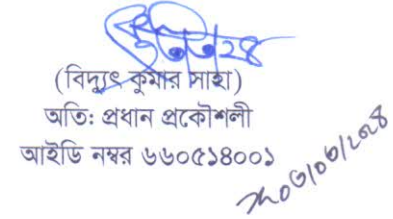 (বিদ্যুৎ কুমার সাহা)
অতি: প্রধান প্রকৌশলী
আইডি নম্বর ৬৬০৫১৪০০১